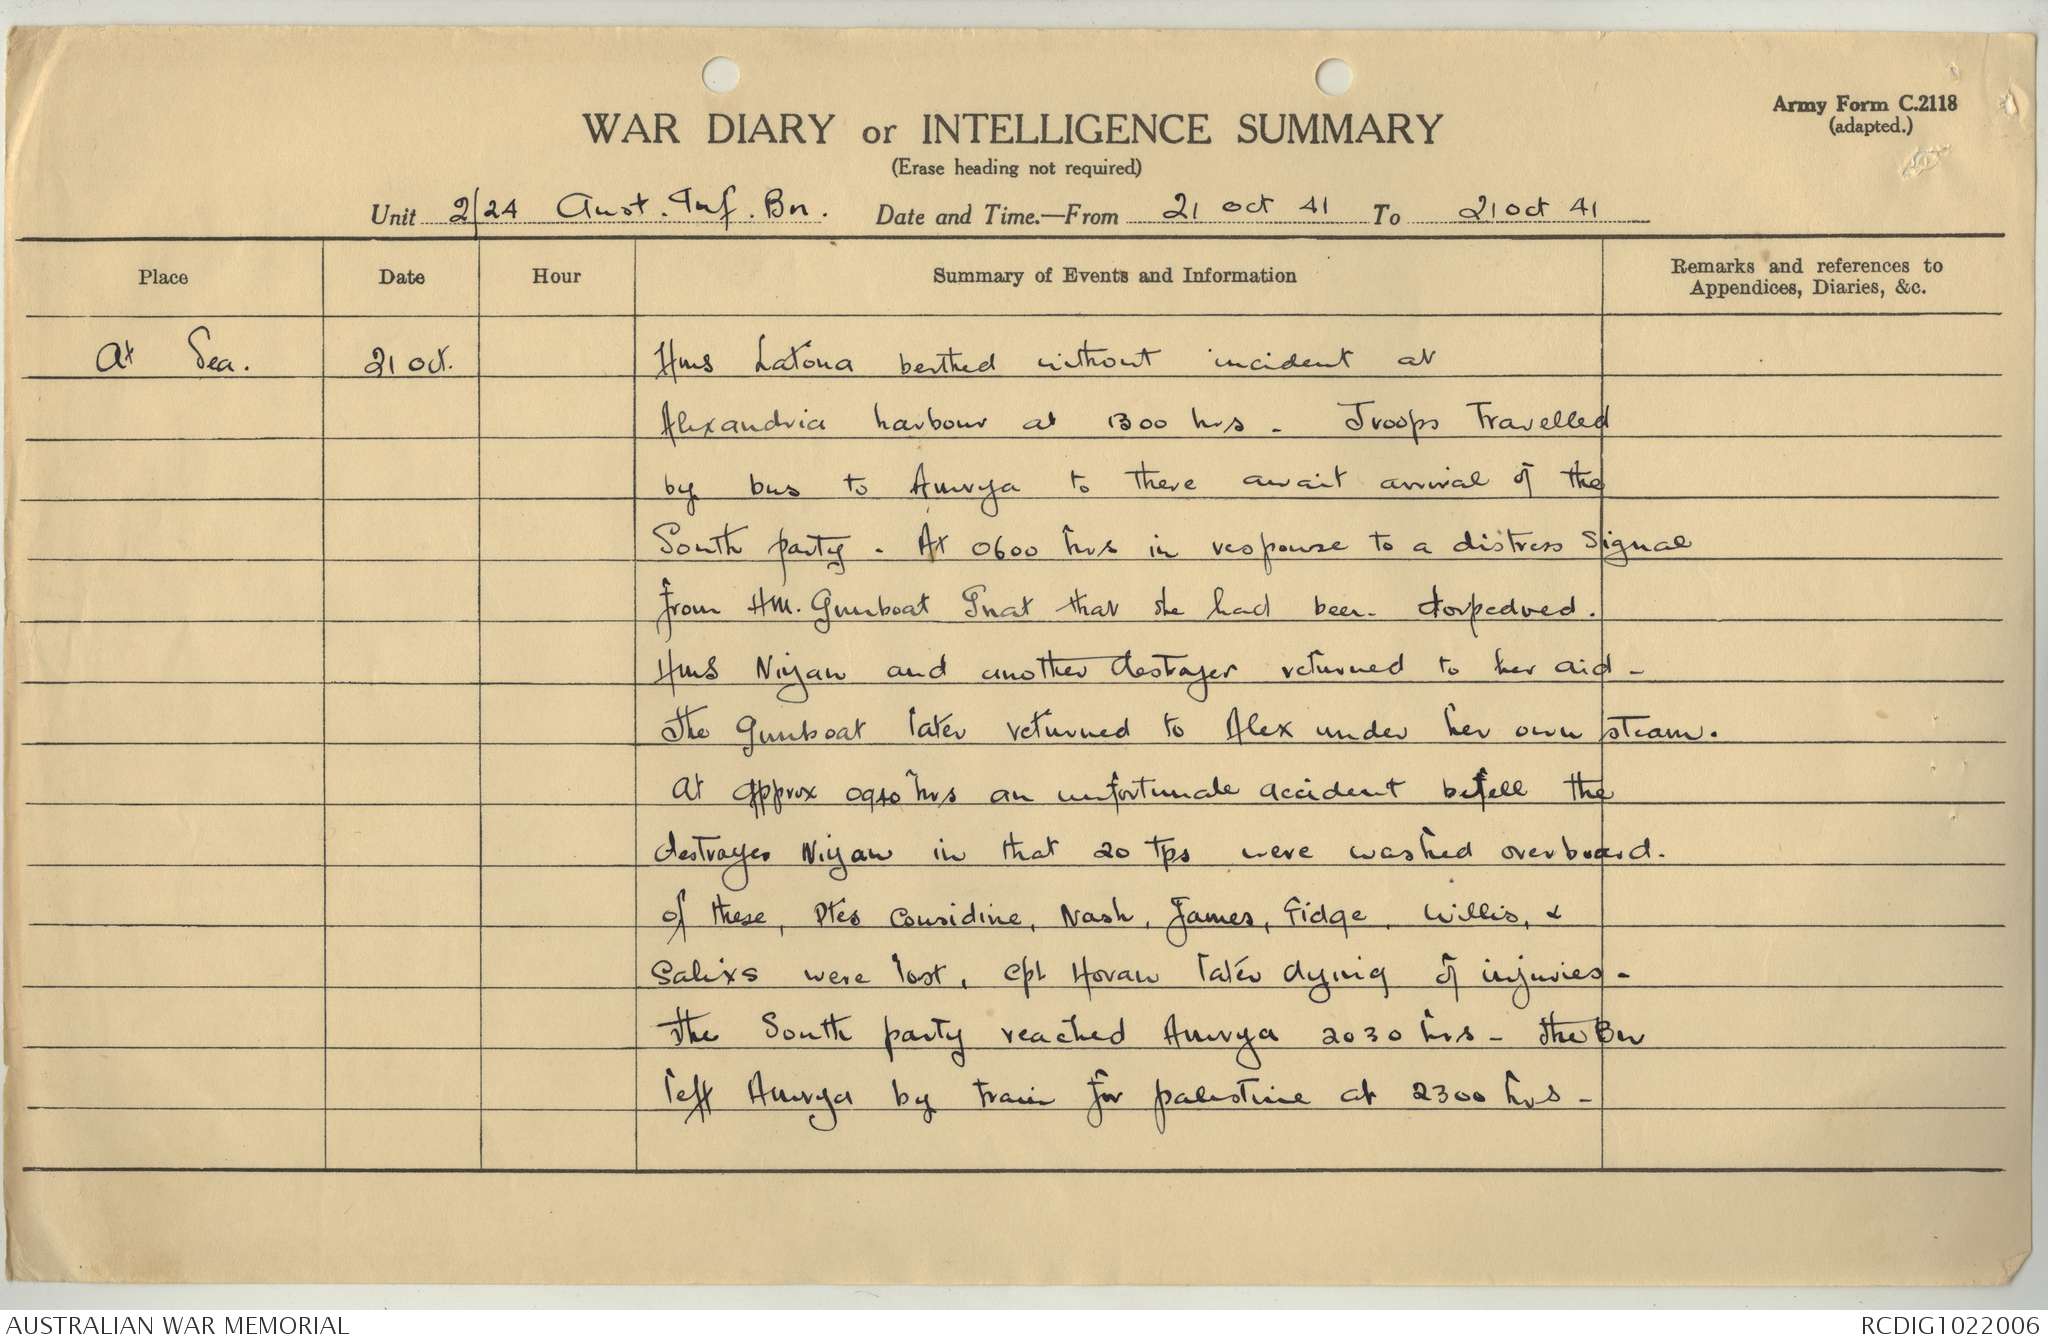 Army Form C.2118
(adapted.)
WAR DIARY or INTELLIGENCE SUMMARY
(Erase heading not required)
Unit 2/24 Aust. Inf. Bn. Date and Time.—From 21 Oct 41 To 21 Oct 41
Place Date Hour Summary of Events and Information Remarks and references to
Appendices, Diaries, &c.
At Sea. 21 Oct. HMS Latona berthed without incident at
Alexandria harbour at 1300 hrs - Troops travelled
by bus to Amrya to there await arrival of the
South party. At 0600 hrs in response to a distress signal
from HM. Gunboat Gnat that she had been torpedoed.
HMS Nizam and another destroyer returned to her aid -
The Gunboat later returned to Alex under her own steam.
At approx 0940 hrs an unfortunate accident befell the
destroyer Nizam in that 20 tps were washed overboard.
Of these, Ptes Considine, Nash, James, Fidge, Willis, &
were lost, Cpl Horan later dying of injuries -
The South party reached Amrya 2030 hrs - The Bn
left Amrya by train for Palestine at 2300 hrs -
AUSTRALIAN WAR MEMORIAL RCDIG1022006